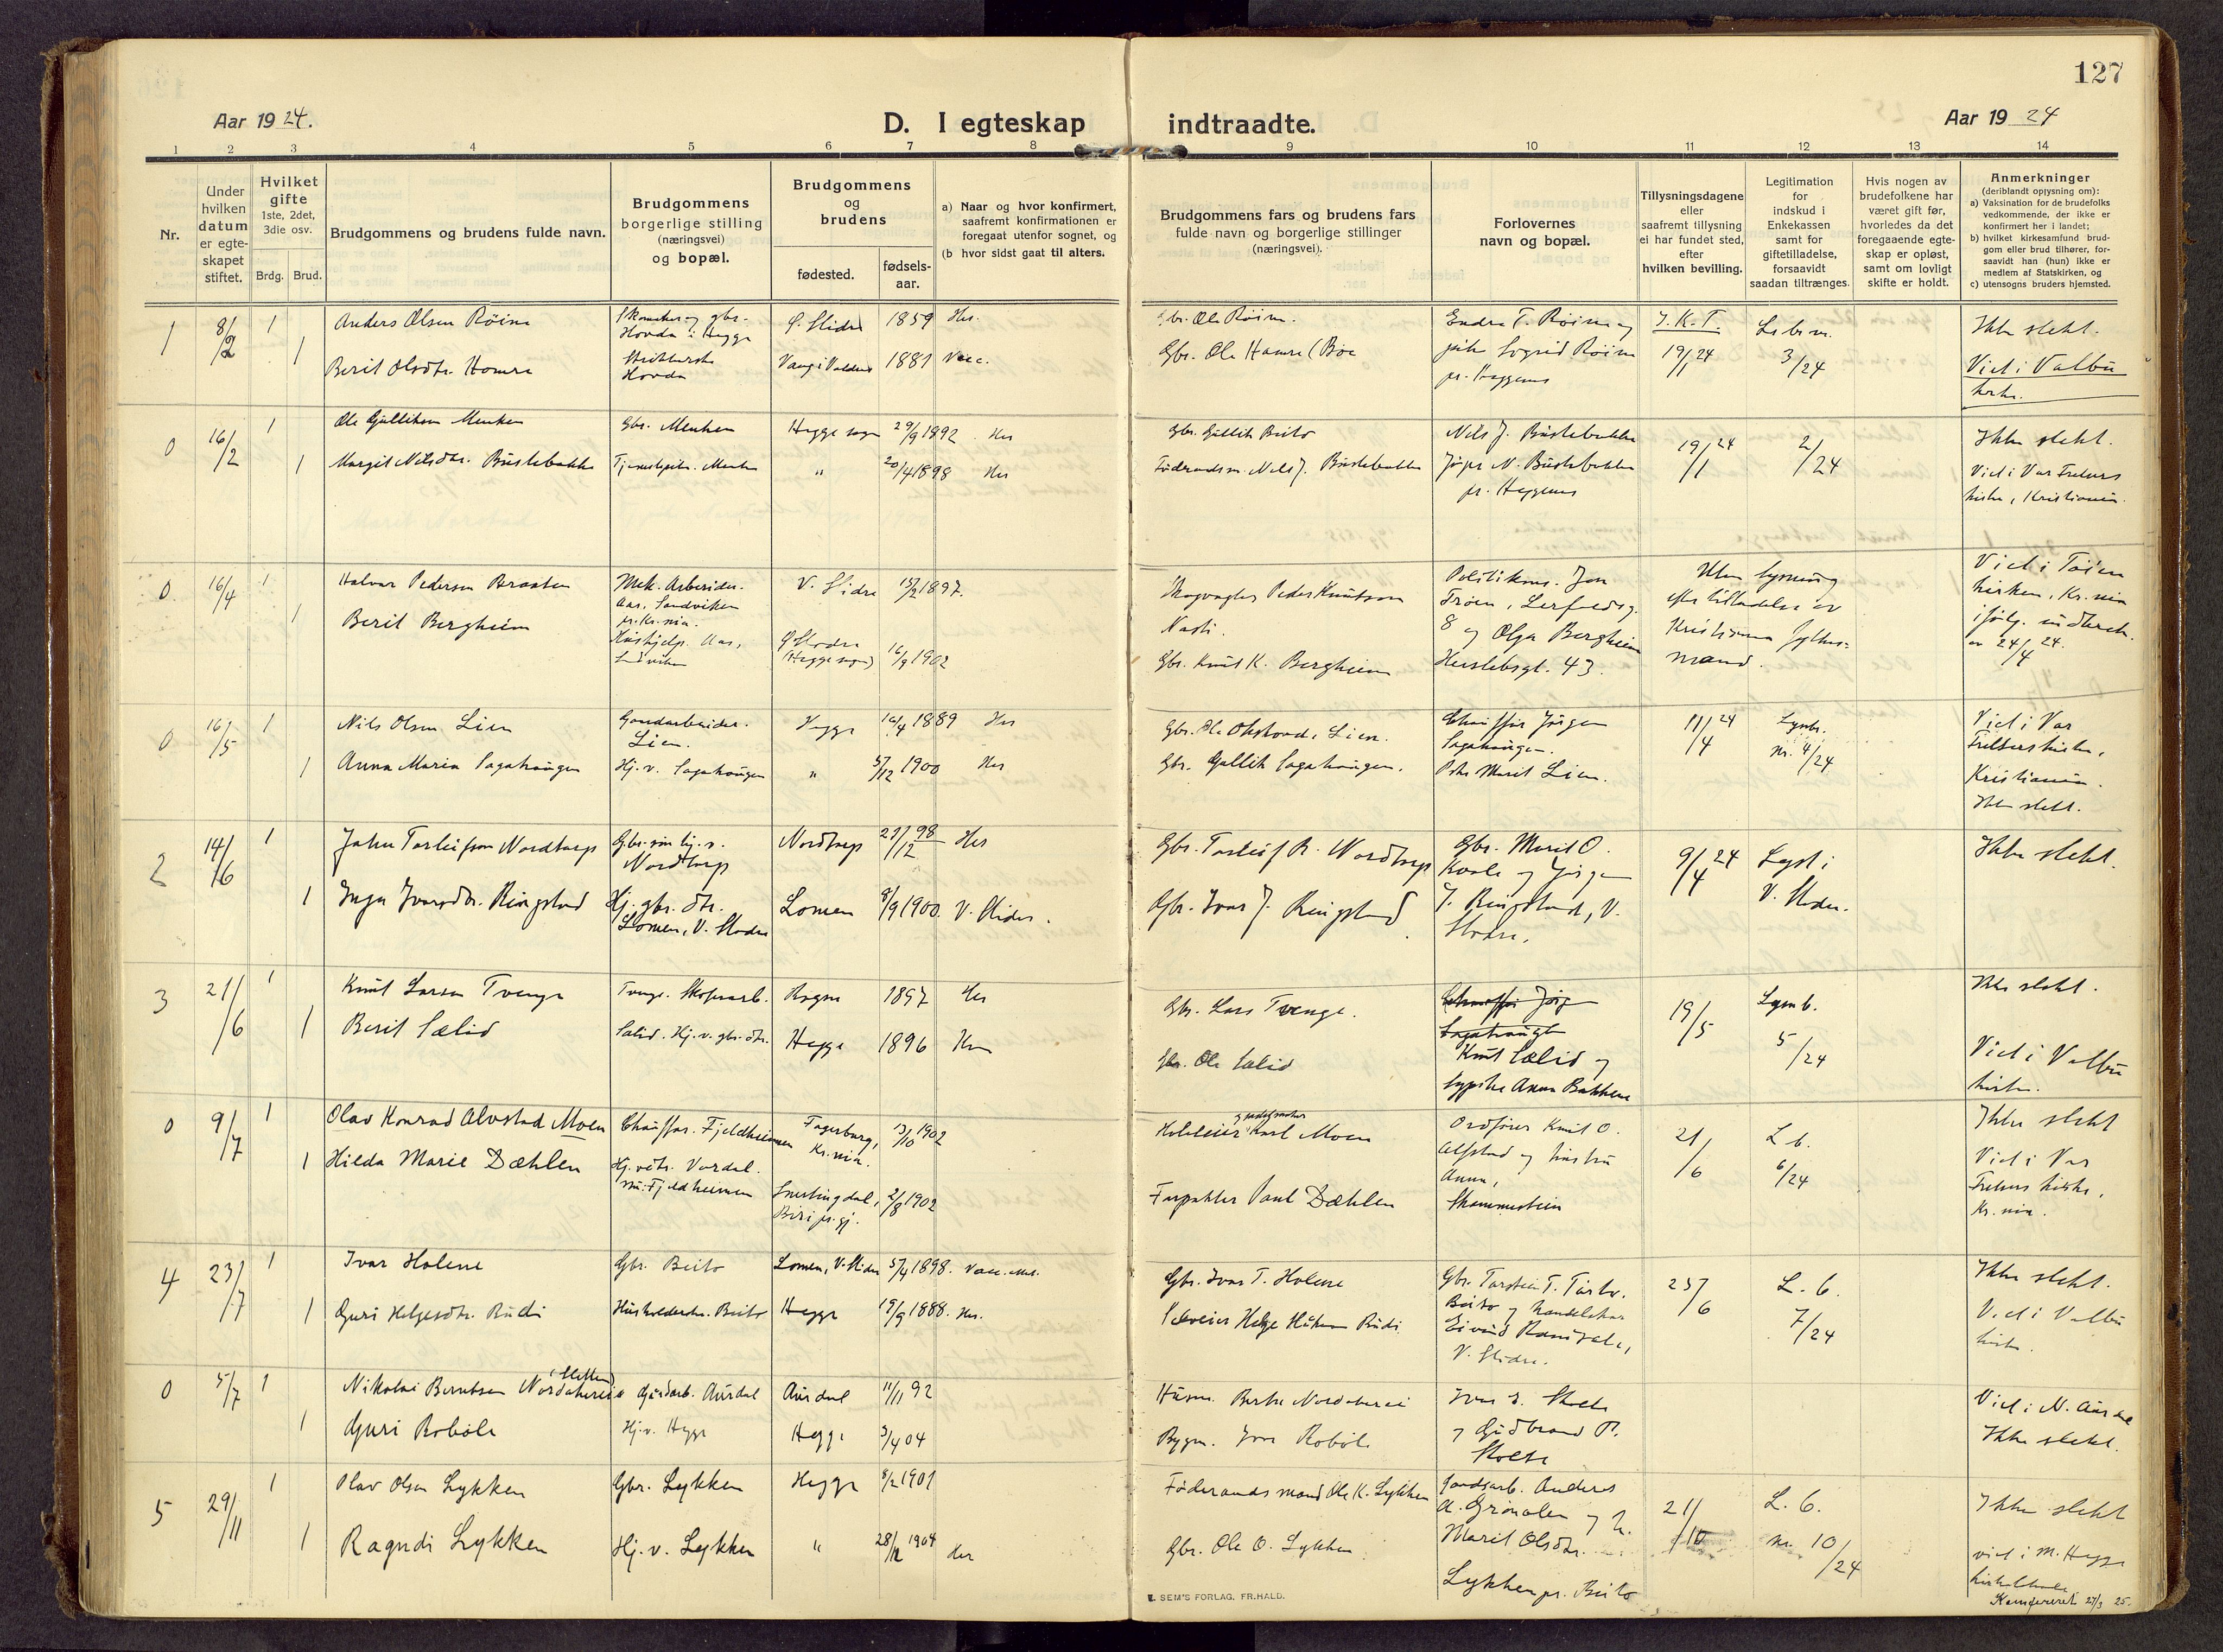 127
Aar 1924.
D. I egteskap indtraadte.
Aar 1924
1 2 3 4 5 6 7 8 9 10 11 12 13 14
Nr.
Under hvilken datum er egte- skapet stiftet.
Hvilket gifte 1ste, 2det, 3die osv.
Brdg. Brud.
Brudgommens og brudens fulde navn.
Brudgommens borgerlige stilling (næringsvei) og bopæl.
Brudgommens og brudens
fødested.
fødsels- aar.
a) Naar og hvor konfirmert, saafremt konfirmationen er foregaat utenfor sognet, og
(b hvor sidst gaat til alters.
Brudgommens fars og brudens fars fulde navn og borgerlige stillinger (næringsvei).
Forlovernes navn og bopæl.
Tillysningsdagene eller saafremt tillysning ei har fundet sted, efter hvilken bevilling.
Legitimation for indskud i Enkekassen samt for giftetilladelse, forsaavidt saadan tiltrænges.
Hvis nogen av brudefolkene har været gift før, hvorledes da det foregaaende egte- skap er opløst, samt om lovligt skifte er holdt.
Anmerkninger (deriblandt opjysning om):
a) Vaksination for de brudefolks vedkommende, der ikke er konfirmert her i landet;
b) hvilket kirkesamfund brud- gom eller brud tilhører, for- saavidt han (hun) ikke er medlem af Statskirken, og
c) utensogns bruders hjemsted.
1 8/2 1 Anders Olsen Röine
Hovda i Hegge
Ø. Slidre 1859 Her.
Gbr. Ole Röine.
Endre T. Röine og
J.K.T.
19/1 24
3/24
Ikke slekt.
1 Berit Olsdtr. Hamre
Hovda
Vang i Valdres 1881 Vacc.
Gbr. Ole Hamre (Böe
Sigrid Röine
pr. Heggenes
Viet i Valbu
kirke.
0 16/2 1 Ole Gulliksen Menken
Gbr. Menken
Hegge sogn 29/9 1892 Her
Gbr. Gullik Beito
Nils J. Büstebakke
19/1 24
2/24
Ikke slekt.
1 Margit Nilsdtr. Büstebakke
" 20/4 1898 Her
Föderaadsm. Nils J. Büstebakke
N. Büstebakke
pr. Heggenes
Viet i Var Frelsers
kirke, Kristiania.
0 16/4 1 Halvar Pedersen Braaten
Mek. Arbeider.
Aas, Sandviken
pr. Kr.nia.
V. Slidre 15/2 1897.
Skogvagter Peder Knutson
Politikons. Jon
Uten lysning
efter tilladelse av
Kristiania fylkes-
mand.
Viet i Töien
kirken, Kr.nia
ifölg.
av 24/4 24.
1 Berit Bergheim
Hushjelp. Aas,
Ø. Slidre
(Hegge sogn) 16/9 1902
Gbr. Knut K. Bergheim
8 og Olga Bergheim
Herslebsgt. 43.
0 16/5 1 Nils Olsen Lien
Gaardarbeider.
Lien.
Hegge 16/4 1889 Her
Gbr. Ole Lien.
Chauffør Jörgen
Sagahaugen.
11/4 24
nr. 4/24
Viet i Var
Frelsers kirke,
Kristiania.
Ikke slekt.
1 Anna Maria Sagahaugen
Hj. v. Sagahaugen
" 5/12 1900 Her
Gbr. Gullik Sagahaugen.
Marit Lien.
2 14/6 1 John Torleifson Nordtorp
Nordtorp
Nordtorp 29/12 98 Her
Gbr. Torleif R. Nordtorp
Gbr. Marit O.
Kvale og Jörgen
J. Ringstad, V.
Slidre.
9/4 24
Lyst i
V. Slidre.
Ikke slekt.
1 Inga Ivarsdtr. Ringstad
Hj. gbr. dtr.
Lomen, V. Slidre
Lomen 8/9 1900. V. Slidre.
Gbr. Ivar J. Ringstad
3 21/6 1 Knut Larsen Tvenge
Tvenge. Skogsarb.
Rogne 1897 Her
Gbr. Lars Tvenge.
Chauffør Jörg
Sagahaugen
Knut Sælid og
Anna Bakkene
19/5
Lysn b.
5/24
Ikke slekt.
Viet i Valbu
kirke.
1 Berit Sælid
Sælid. Hj. v. gbr. dtr.
Hegge 1896 Her
Gbr. Ole Sælid
0 9/7 1 Olav Konrad Alvstad Moen
Chauffør. Fjeldheimen
Fagerborg,
Kr.nia. 13/10 1902
Karl Moen
Ordfører Knut O.
Alfstad og hustru
Anna,
Skammestein
21/6
L b.
6/24
Ikke slekt
Viet i Var
Frelsers kirke,
Kr.nia.
1 Hilda Marie Dæhlen
Fjeldheimen
Snertingdal,
Biri pr.gj. 2/8 1902
Forpakter Paul Dæhlen
4 23/7 1 Ivar Holene
Gbr. Beito
Lomen, V. Slidre 5/4 1898. Vacc. att.
Gbr. Ivar T. Holene
Gbr. Torstein T.
Beito og handelskar
Eivind
V. Slidre.
23/6
L. b.
7/24
Ikke slekt.
Viet i Valbu
kirke.
1 Guri Helgesdtr. Rudi
Husholderske. Beito
Hegge 19/9 1888. Her.
Helge Rudi
0 5/7 1 Nikolai Berntsen
Gardarb. Aurdal
Aurdal 11/11 92
Ivar E.
og Gudbrand P.
Viet i N. Aurdal
Ikke slekt.
1 Guri Robøle
Hj. v. Hegge
Hegge 3/4 04
Robøle
5 29/11 1 Olav Olsen Lykken
Gbr. Lykken
Hegge 8/2 1901
Föderaadsmand Ole K. Lykken
Gaardsarb. Anders
A. og
Marit Olsdtr.
Lykken pr. Beito
21/10
L. b.
nr. 10/24
Ikke slekt
viet i
1 Ragndi Lykken
Hj. v. Lykken
" 28/12 1904 Her
Gbr. Ole O. Lykken
Konfereret 27/3 25.
E. SEM'S FORLAG, FR.HALD.